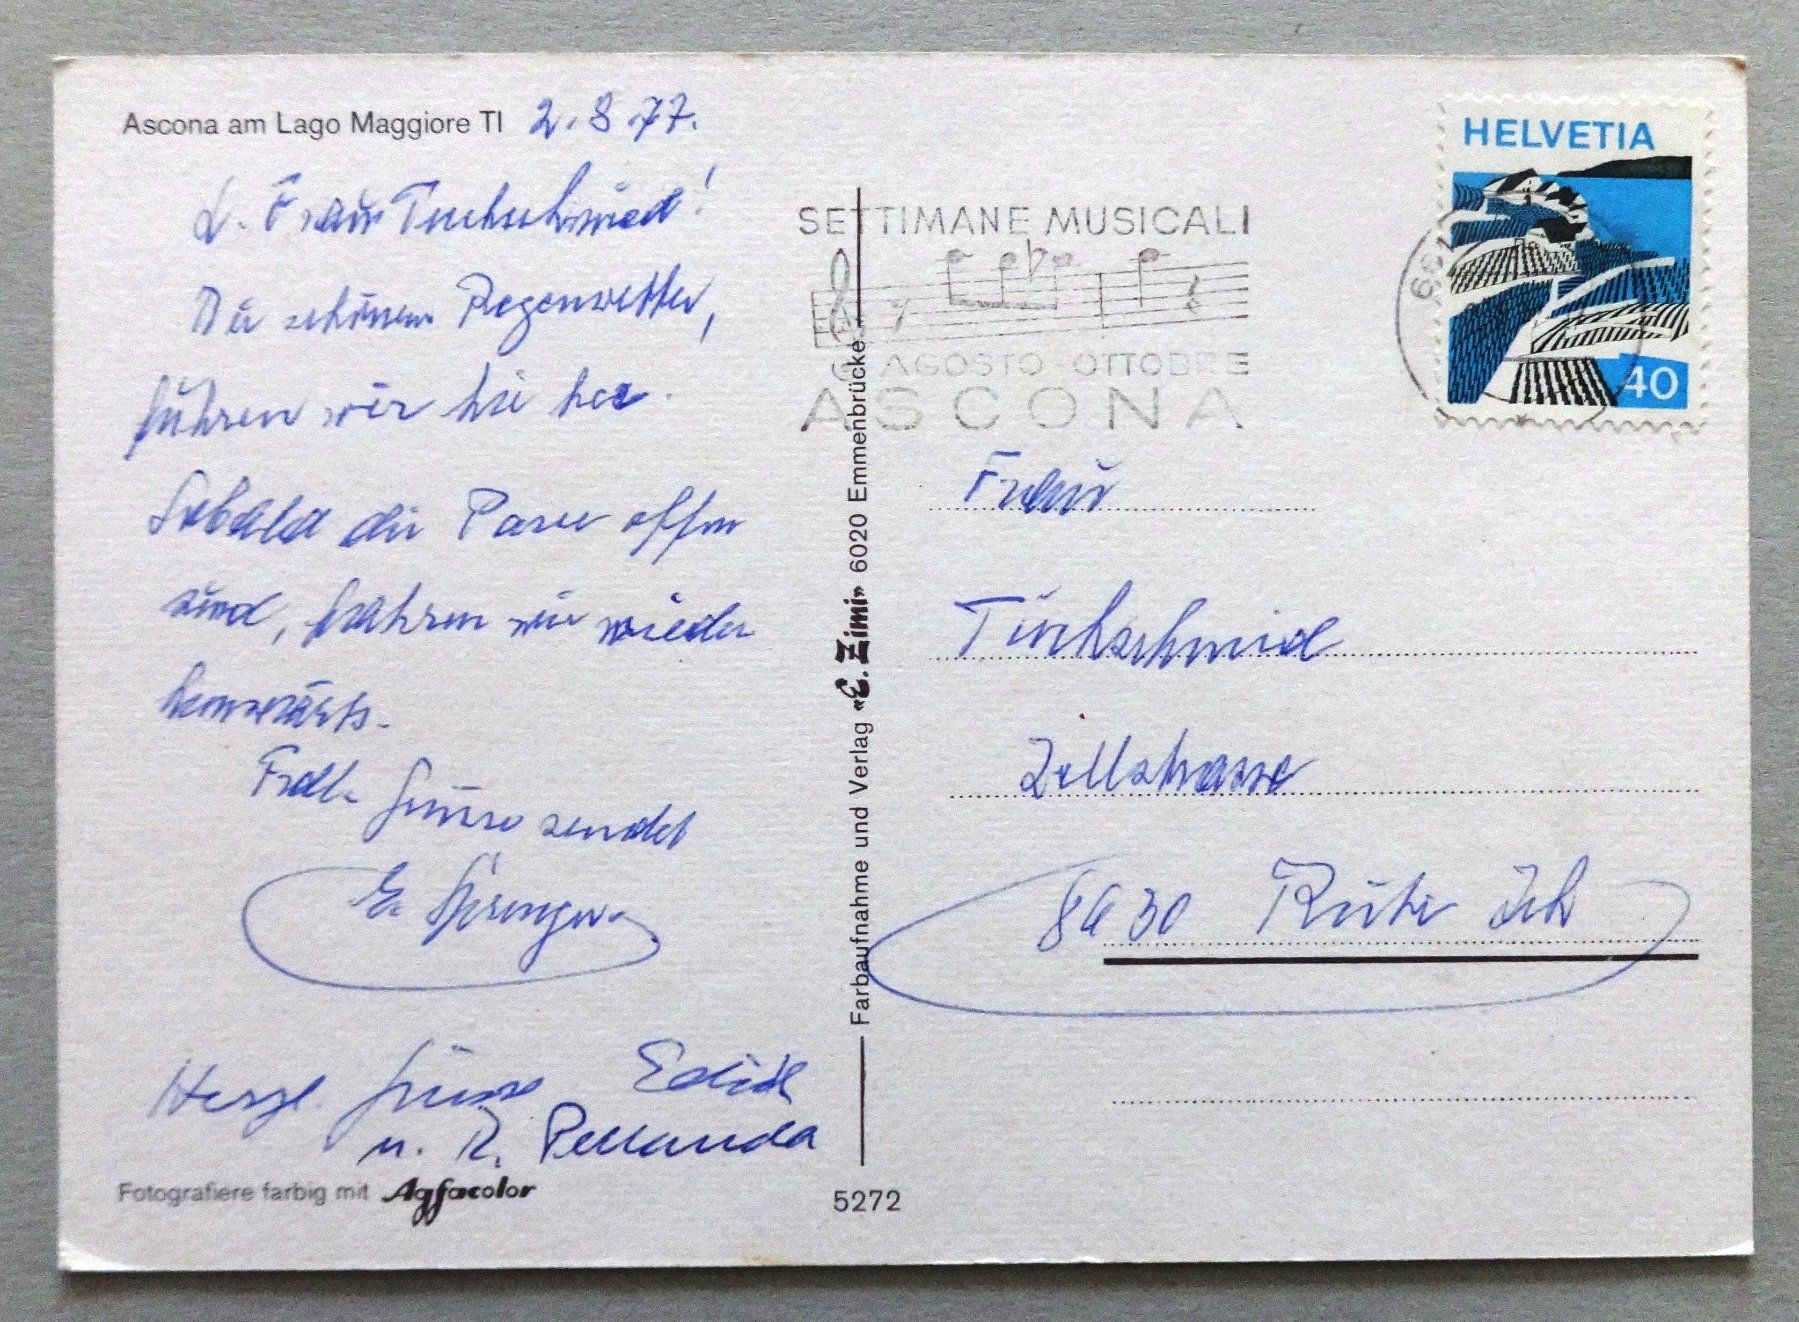 Ascona am Lago Maggiore TI 2.8.77.
L. Frau Tuchschmied!
Bei schönem Regenwetter,
führen wir hie her.
Sobald die Pässe offen
sind, fahren wir wieder
heimwärts.
Frdl. Grüsse sendet
E. Sprenger
Herzl. Grüsse Edith
u. R. Pellanda
Fotografiere farbig mit Agfacolor
Farbaufnahme und Verlag «E. Zimi» 6020 Emmenbrücke
5272
SETTIMANE MUSICALI
AGOSTO-OTTOBRE
ASCONA
HELVETIA
40
Frau
Tuchschmid
Zellstrasse
8630 Rüti Zch